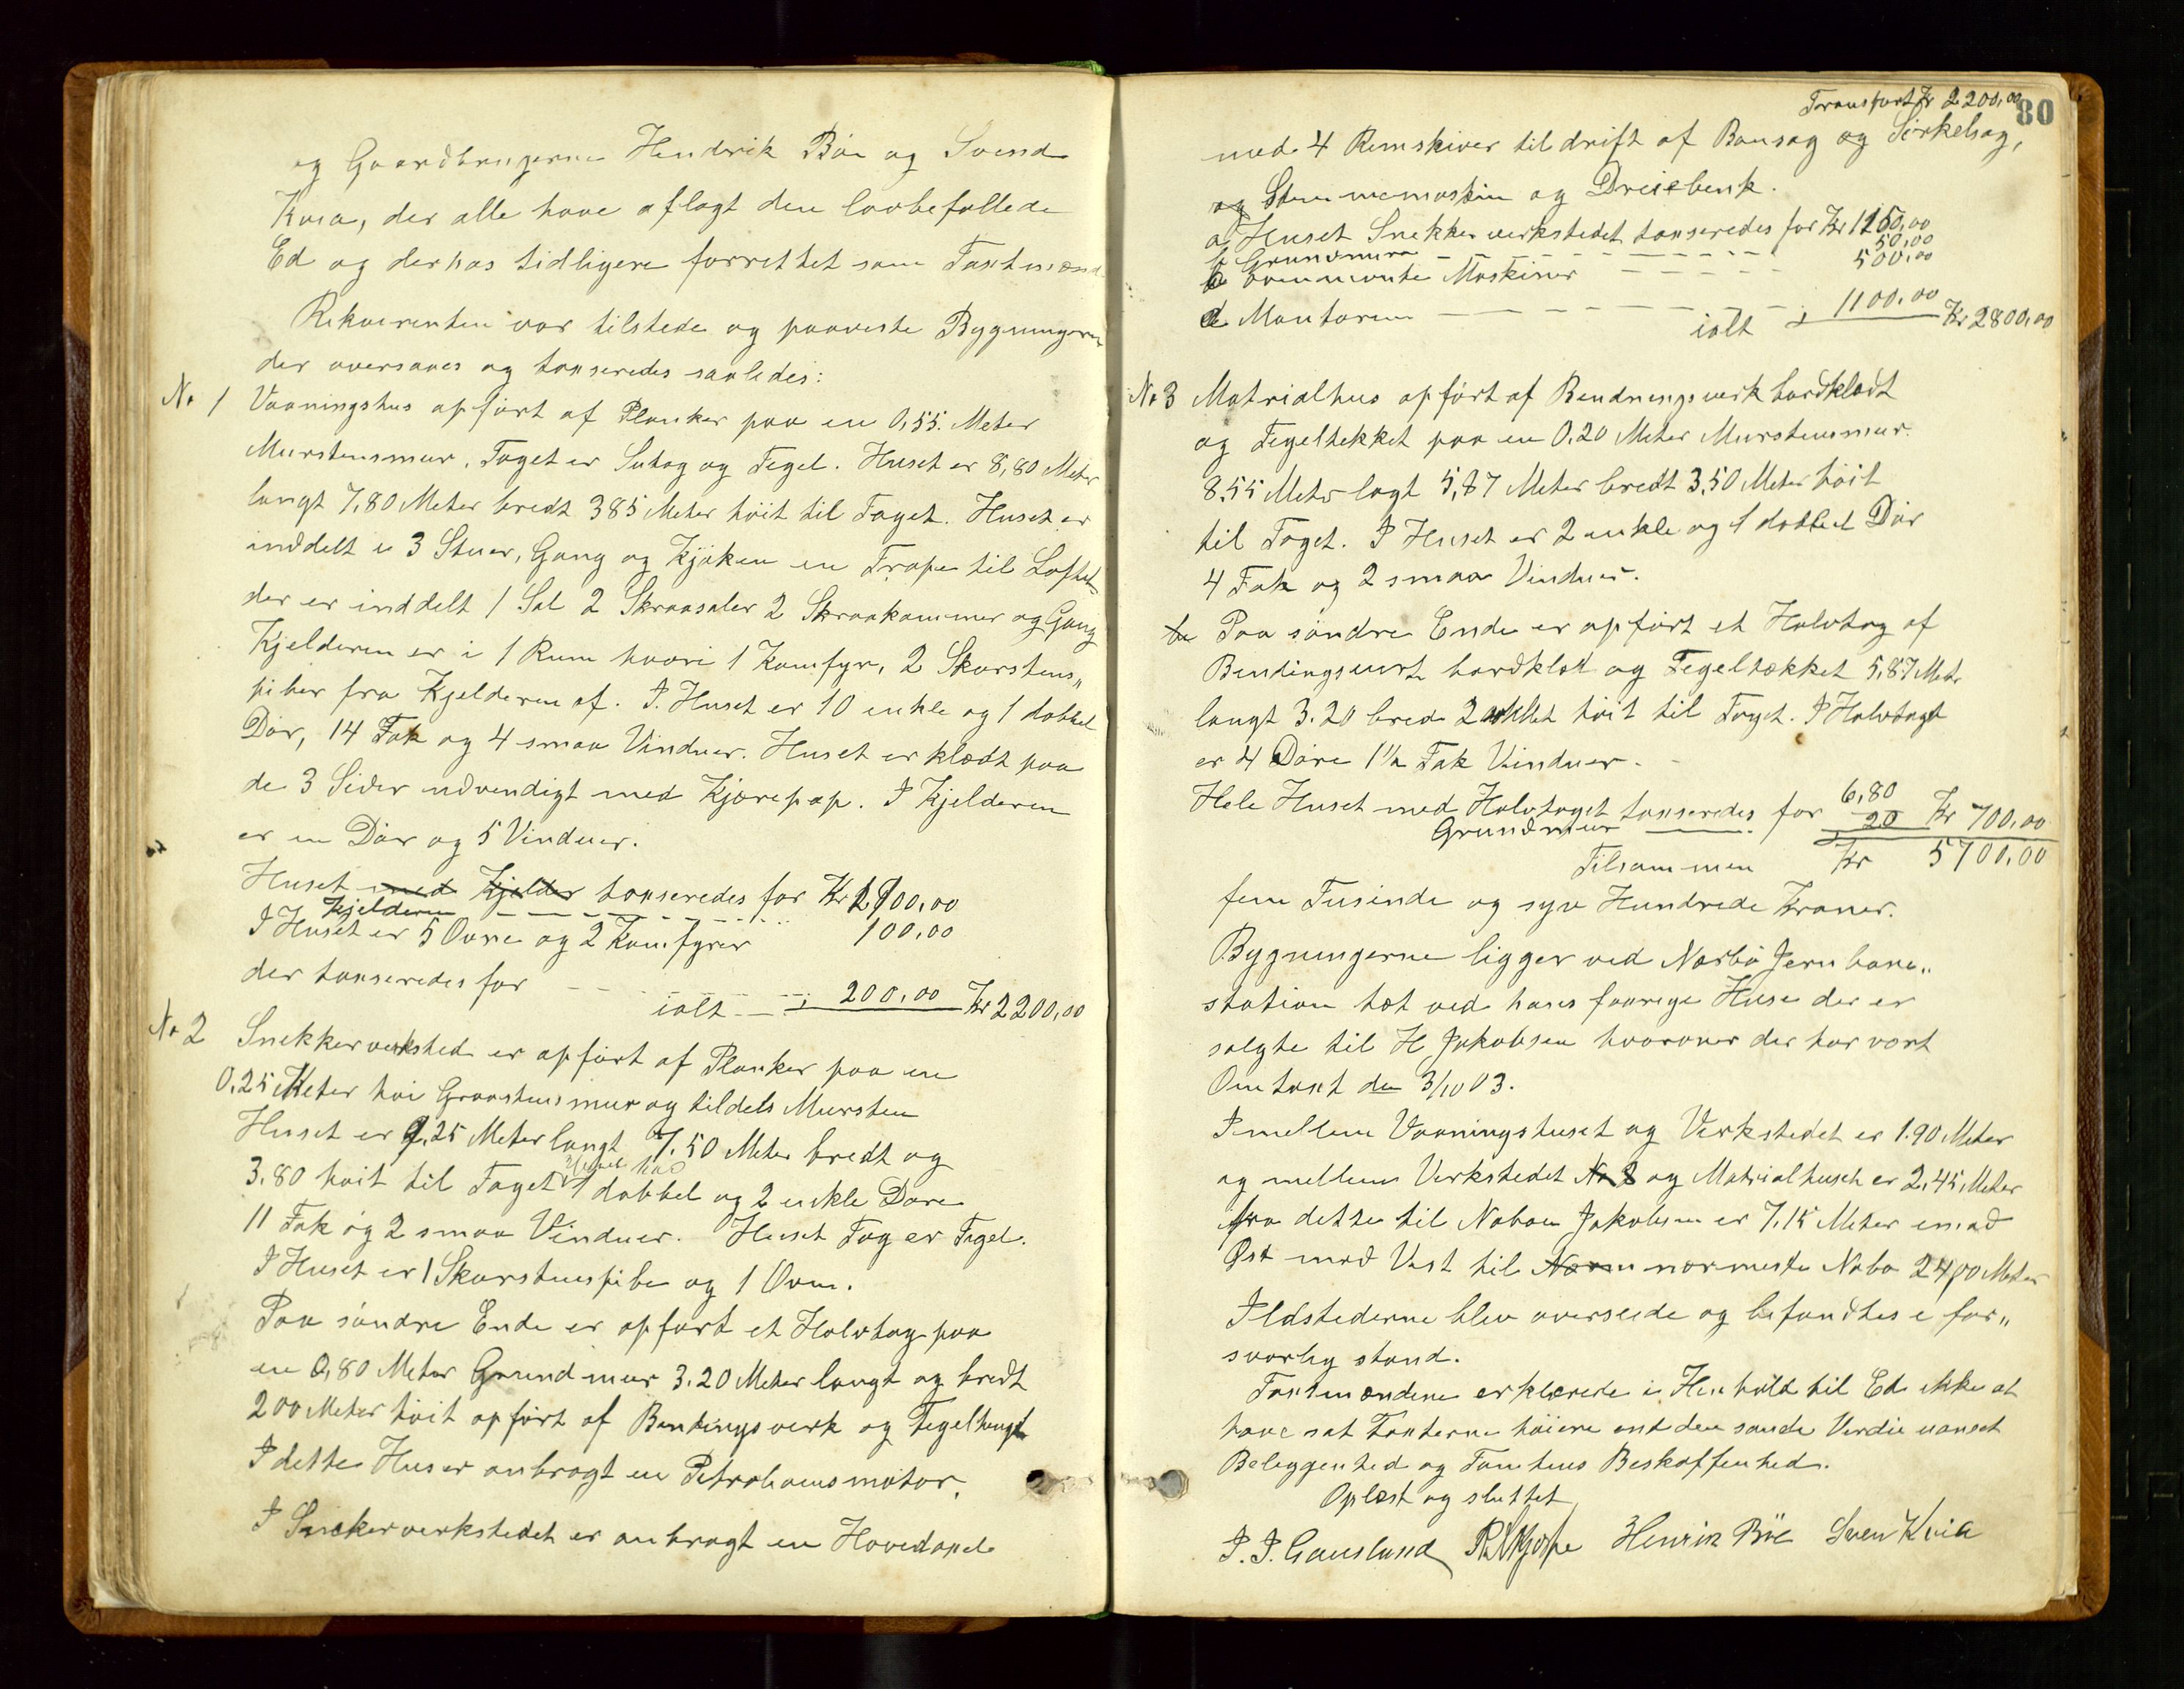 og Gaardbrugerne Hendrik Böe og Svend
Kvia, der alle have aflagt den lovbefallede
Ed og derhos tidligere forrettet som Taxtmænd
Rekvirenten var tilstede og paaviste Bygningerne
der oversaaes og taxseredes saaledes:
No 1 Vaaningshus opfört af Planker paa en 0,55 Meter
Murstensmur, Taget er Sutag og Tegel. Huset er 8,80 Meter
langt 7,80 Meter bredt 385 Meter höit til Taget. Huset er
inddelt i 3 Stuer, Gang og Kjöken en Trape til Loftet
der er inddelt 1 Sal 2 Skraasaler 2 Skraakammer og Gang
Kjelderen er i 1 Rum hvori 1 Komfyr, 2 Skorstens„
piber fra Kjelderen af. I Huset er 10 enkle og 1 dobbel
Dör, 14 Fak og 4 smaa Vinduer. Huset er klædt paa
de 3 Sider udvendigt med Kjærepap. I Kjelderen
er en Dör og 5 Vinduer.
Huset med Kjelder taxseredes for Kr 1900,00
Kjelderen 100,00
I Huset er 5 Ovne og 2 Komfyrer
der taxseredes for 200,00
ialt Kr 2200,00
No 2 Snekkerverksted er opfört af Planker paa en
0.25 Meter höi Graastensmur og tildels Mursten
Huset er 9,25 Meter langt 7.50 Meter bredt og
3.80 höit til Taget 1 dobbel og 2 enkle Döre
11 Fak og 2 smaa Vinduer. Huset Tag er Tegel.
I Huset er 1 Skorstenspibe og 1 Ovn.
Paa söndre Ende er opfört et Halvtag paa
en 0,80 Meter Grundmur 3.20 Meter langt og bredt
200 Meter höit opfört af Bindingsverk og Tegelhengt
I dette Hus er anbragt en Petroliumsmotor.
I Snekerverkstedet er anbragt en Hovedaxele
80
Transport Kr 2200,00
med 4 Remskiver til drift af Bansag og Sirkelsag,
og Stemmemaskin og Dreiebenk.
a Huset Snekkerverkstedet taxseredes for Kr 1150,00
b Grundmure 50,00
c Ovennevnte Maskiner 500,00
d Montoren 1100,00
ialt Kr 2800,00
No 3 Matrialhus opfört af Bendnengsverk bordklædt
og Tegeltekket paa en 0.20 Meter Murstensmur.
8.55 Meter lagt 5,87 Meter bredt 3.50 Meter höit
til Taget. I Huset er 2 enkle og 1 dobbel Dör
4 Fak og 2 smaa Vinduer.
Paa söndre Ende er opfört et Halvtag af
Bendingsverk bordklæd og Tegeltækket 5,87 Meter
langt 3.20 bred 2 Met höit til Taget. I Halvtaget
er 4 Döre 1½ Fak Vinduer.
Hele Huset med Halvtaget taxseredes for 6,80
Grundmur 20 Kr 700,00
Tilsammen Kr 5700,00
fem Tusinde og syv Hundrede Kroner.
Bygningerne ligger ved Nærbö Jernbane„
station tæt ved hans forrige Huse der er
solgte til H Jakobsen hvorover der har vært
Omtaxt den 3/10 03.
Imellem Vaaningshuset og Verkstedet er 1.90 Meter
og mellem Verkstedet No 2 og Matrialhuset er 2,45 Meter
fra dette til Naboen Jakobsen er 7.15 Meter imod
Öst mod Vest til nærmeste Nabo 24,00 Meter
Ildstederne blev overseede og befandtes i for„
svarlig stand.
Taxtmændene erklærede i Henhold til Ed ikke at
have sat Taxterne höiere end den sande Verdie uanset
Beliggenhed og Tomtens Beskaffenhed.
Oplæst og sluttet
J. J. Gausland Henrik Böe Sven Kvia